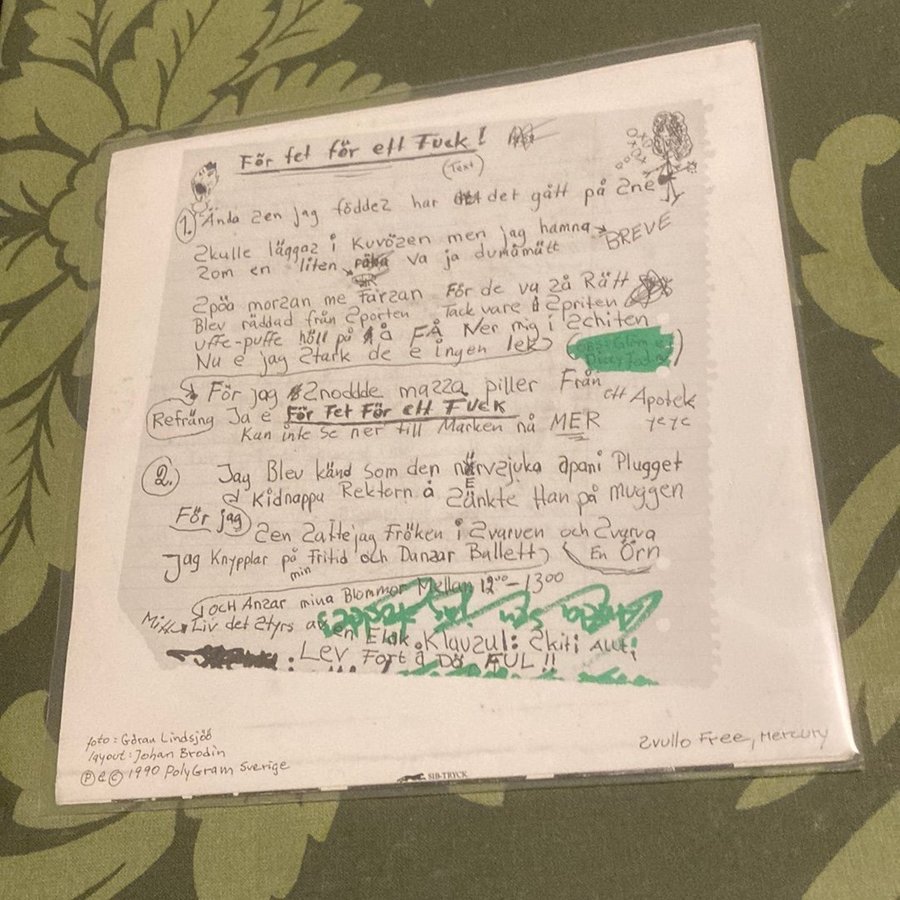 För fet för ett Fuck!
(Text)
1. Ända 2en jag föddes har det gått på 2ne
2kulle läggas i Kuvö2en men jag hamna BREVE
2om en liten va ja dumåmätt
2pöa mor2an me Far2an För de va 2å Rätt
Blev räddad från 2porten Tack vare 2priten
uffe-puffe höll på å FÅ Ner mig i 2chiten
Nu e jag 2tark de e ingen lek
För jag 2nodde ma22a piller Från ett Apotek
Refräng Ja e För Fet För ett Fuck yeye
Kan inte Se ner till Marken nå MER
2. Jag Blev känd Som den nÄrv2juka apan i Plugget
å Kidnappa Rektorn å 2änkte Han på muggen
För jag
2en 2atte jag Fröken i 2varven och 2varva
Jag Knypplar på min Fritid och Dan2ar Ballett En Örn
och An2ar mina Blommor Mellan 12⁰⁰-13⁰⁰
Mitt Liv det 2tyrs av en Elak Klau2ul: 2kit i Allt
: Lev Fort å Dö FUL!!
foto: Göran Lindsjöö
layout: Johan Brodin
℗ & © 1990 PolyGram Sverige
2vullo Free, Mercury
SIB-TRYCK